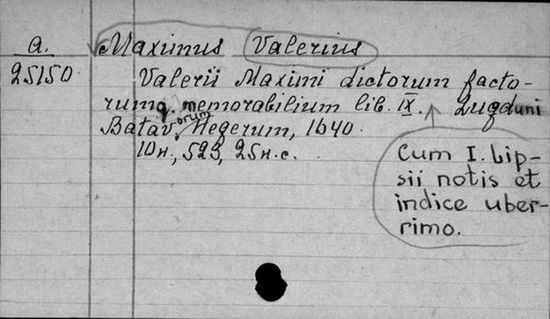 a.
25150
Maximus Valerius
Valerii Maximi dictorum facto-
rumq. memorabilium lib. IX. Lugduni
Batavorum, Hegerum, 1640.
10н., 523, 25н.с.
Cum I. Lip-
sii notis et
indice uber-
rimo.